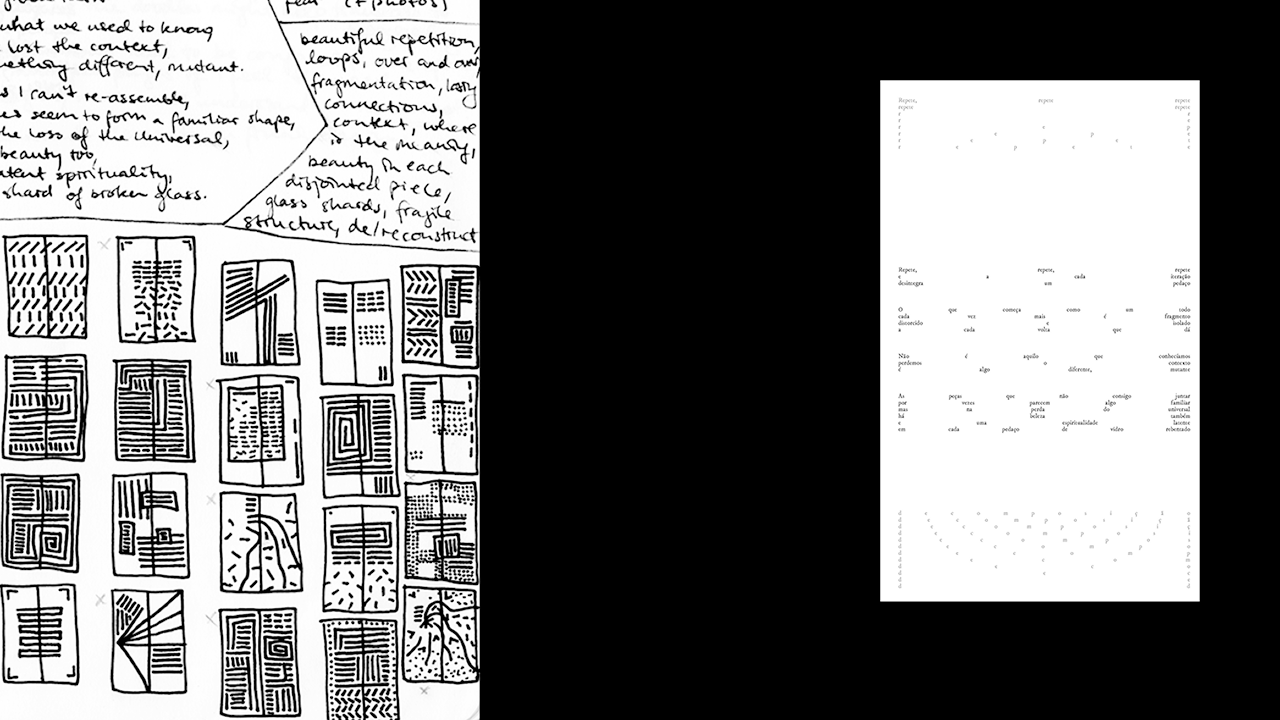 fear (+ photos)
what we used to know,
lost the context,
something different, mutant.
s I can't re-assemble,
seem to form a familiar shape,
the loss of the universal,
beauty too,
latent spirituality,
shard of broken glass.
beautiful repetition,
loops, over and over,
fragmentation,
connections,
context, where
is the meaning,
beauty in each
disjointed piece,
glass shards, fragile
structure, de/reconstruct
Repete, repete repete
repete repete
r e
r p
r e e p t
r e p e t e
r e p e t e
Repete, repete, repete
e a cada iteração
desintegra um pedaço
O que começa como um todo
cada vez mais é fragmentos
discorrido e isolado
a cada volta que dá
Não é aquilo que conhecíamos
perdemos o contexto
é algo diferente, mutante
As peças que não consigo juntar
por vezes parecem algo familiar
mas na perda do universal
há beleza também
e uma espiritualidade latente
em cada pedaço de vidro rebentado
d e c o m p o s i ç ã o